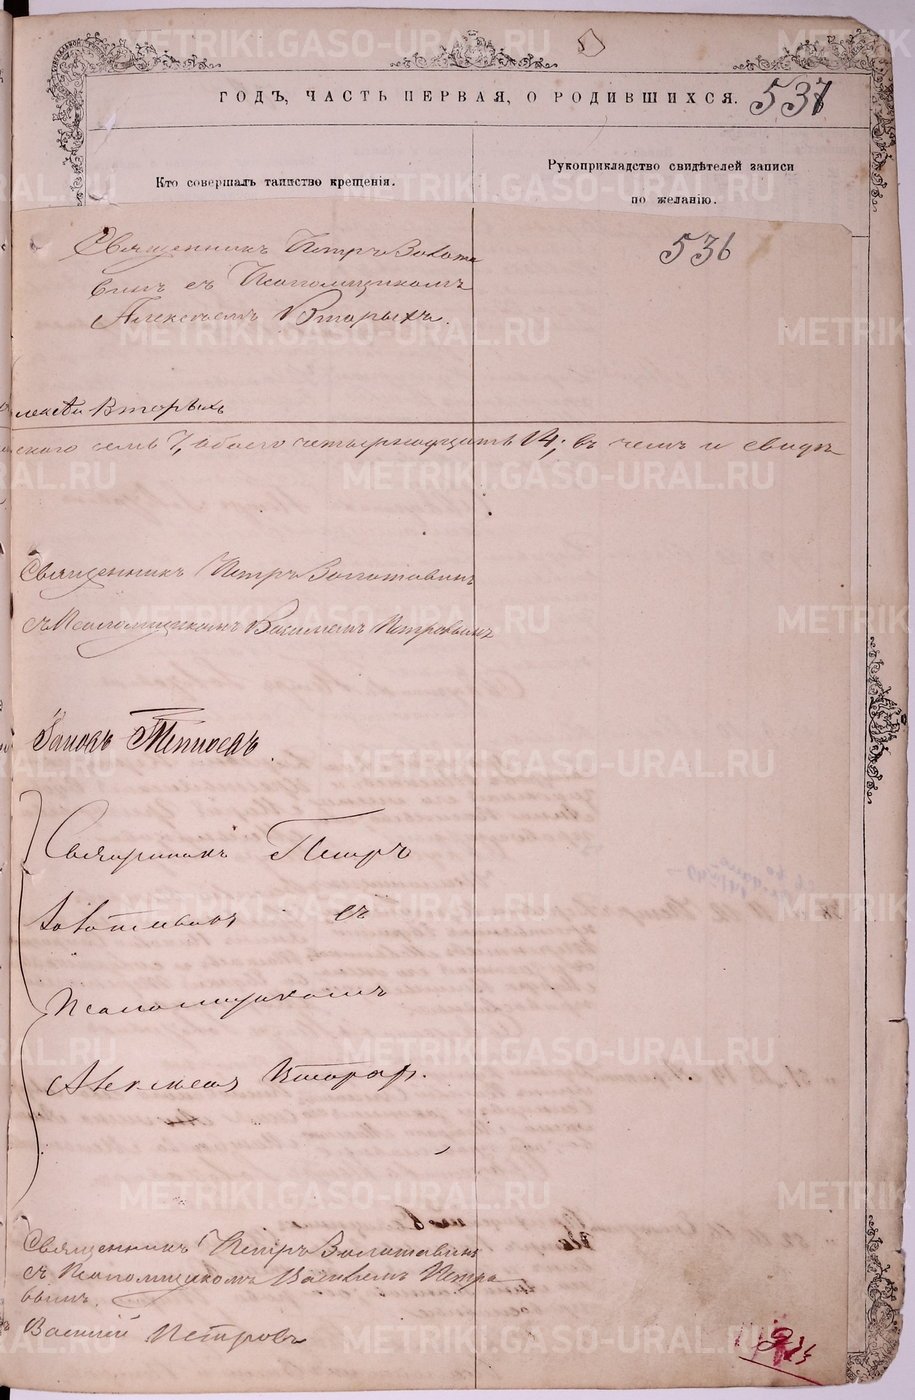 ГОДЪ, ЧАСТЬ ПЕРВАЯ, О РОДИВШИХСЯ. 537
Кто совершалъ таинство крещенія.
Рукоприкладство свидѣтелей записи
по желанію.
536
Священникъ Петръ Золота
винъ съ Псаломщикомъ
Алексѣемъ Вторыхъ.
лексѣй Вторыхъ
ского семь 7, обоего четырнадцать 14; въ чемъ и свидѣ
Священникъ Петръ Золотавинъ
съ Псаломщикомъ Василіемъ Петровымъ
Священникъ Петръ
Золотавинъ съ
Псаломщикомъ
Алексѣемъ
Священникъ Петръ Золотавинъ
съ Псаломщикомъ Василіемъ Петро
вымъ.
Василій Петровъ
METRIKI.GASO-URAL.RU